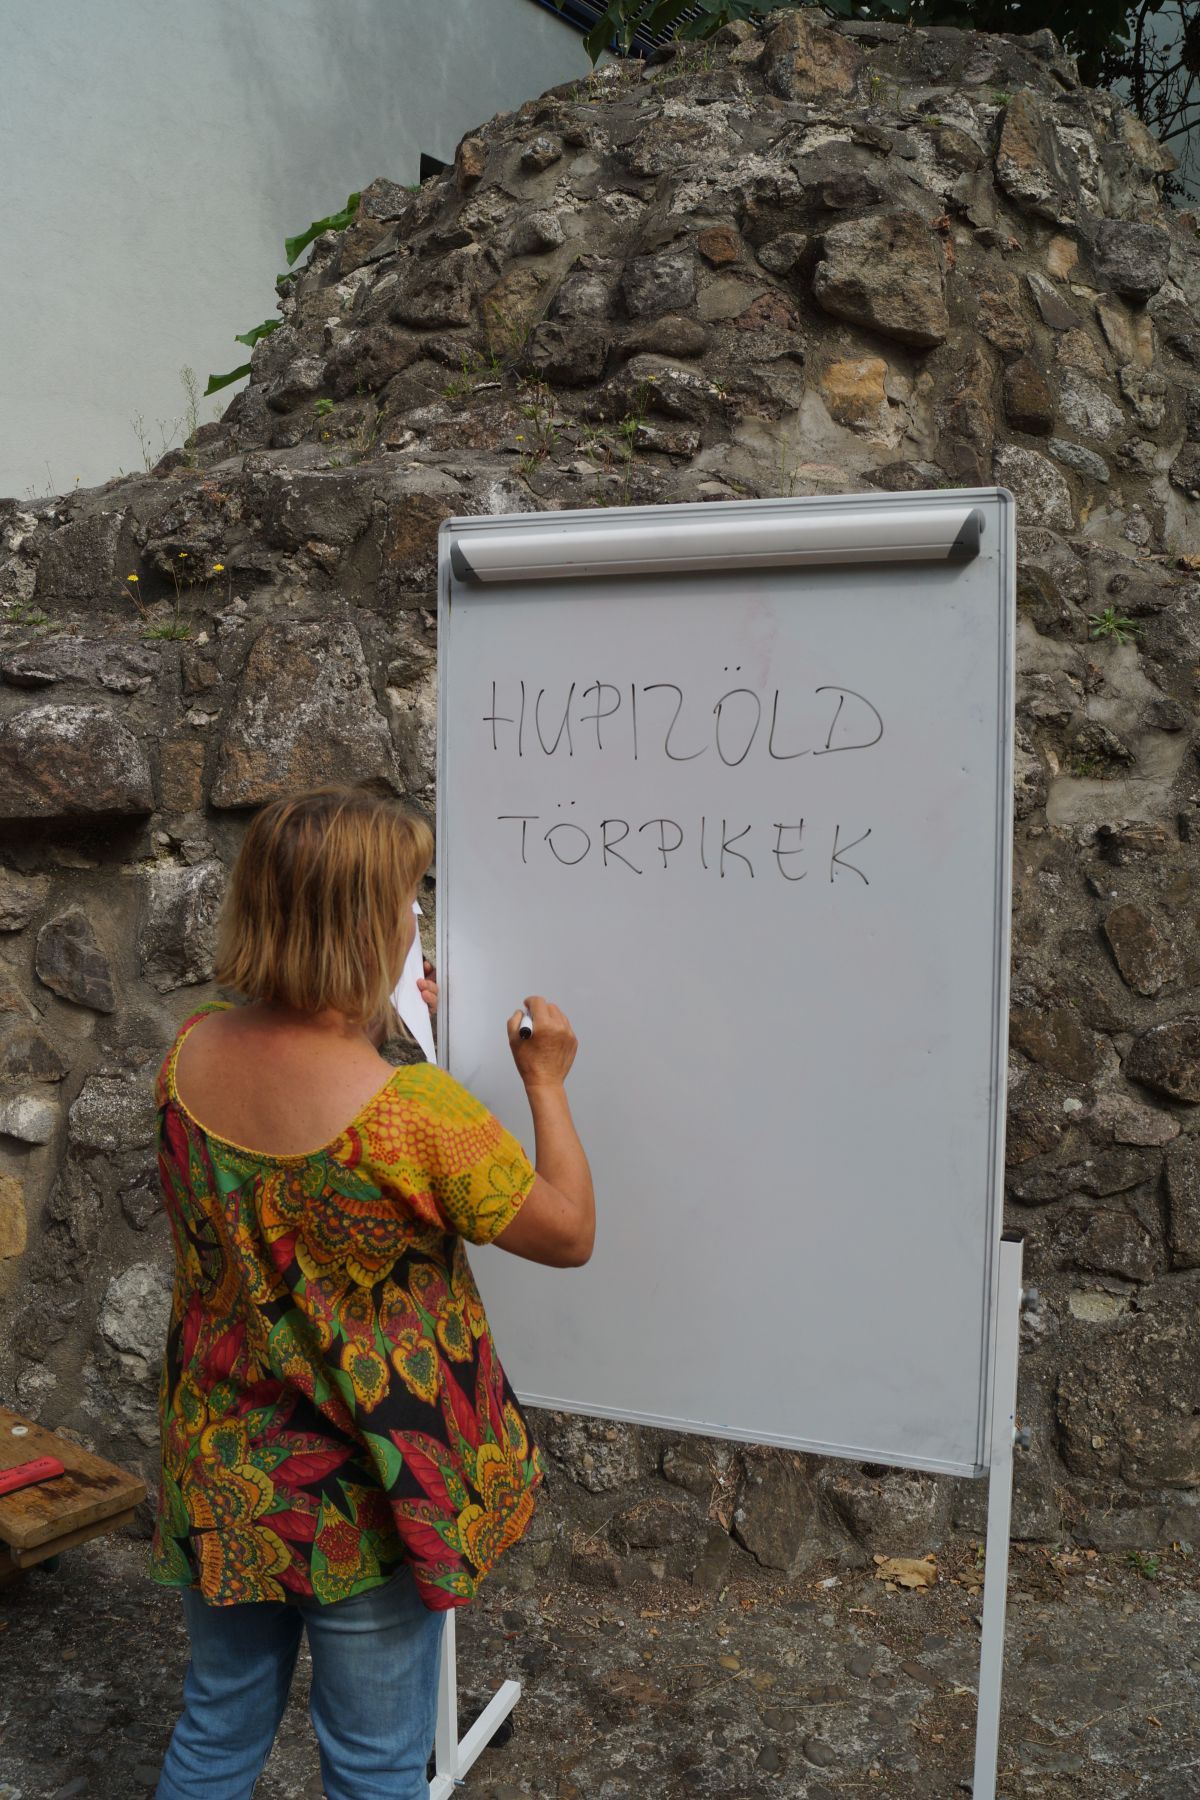 HUPIZÖLD
TÖRPIKÉK